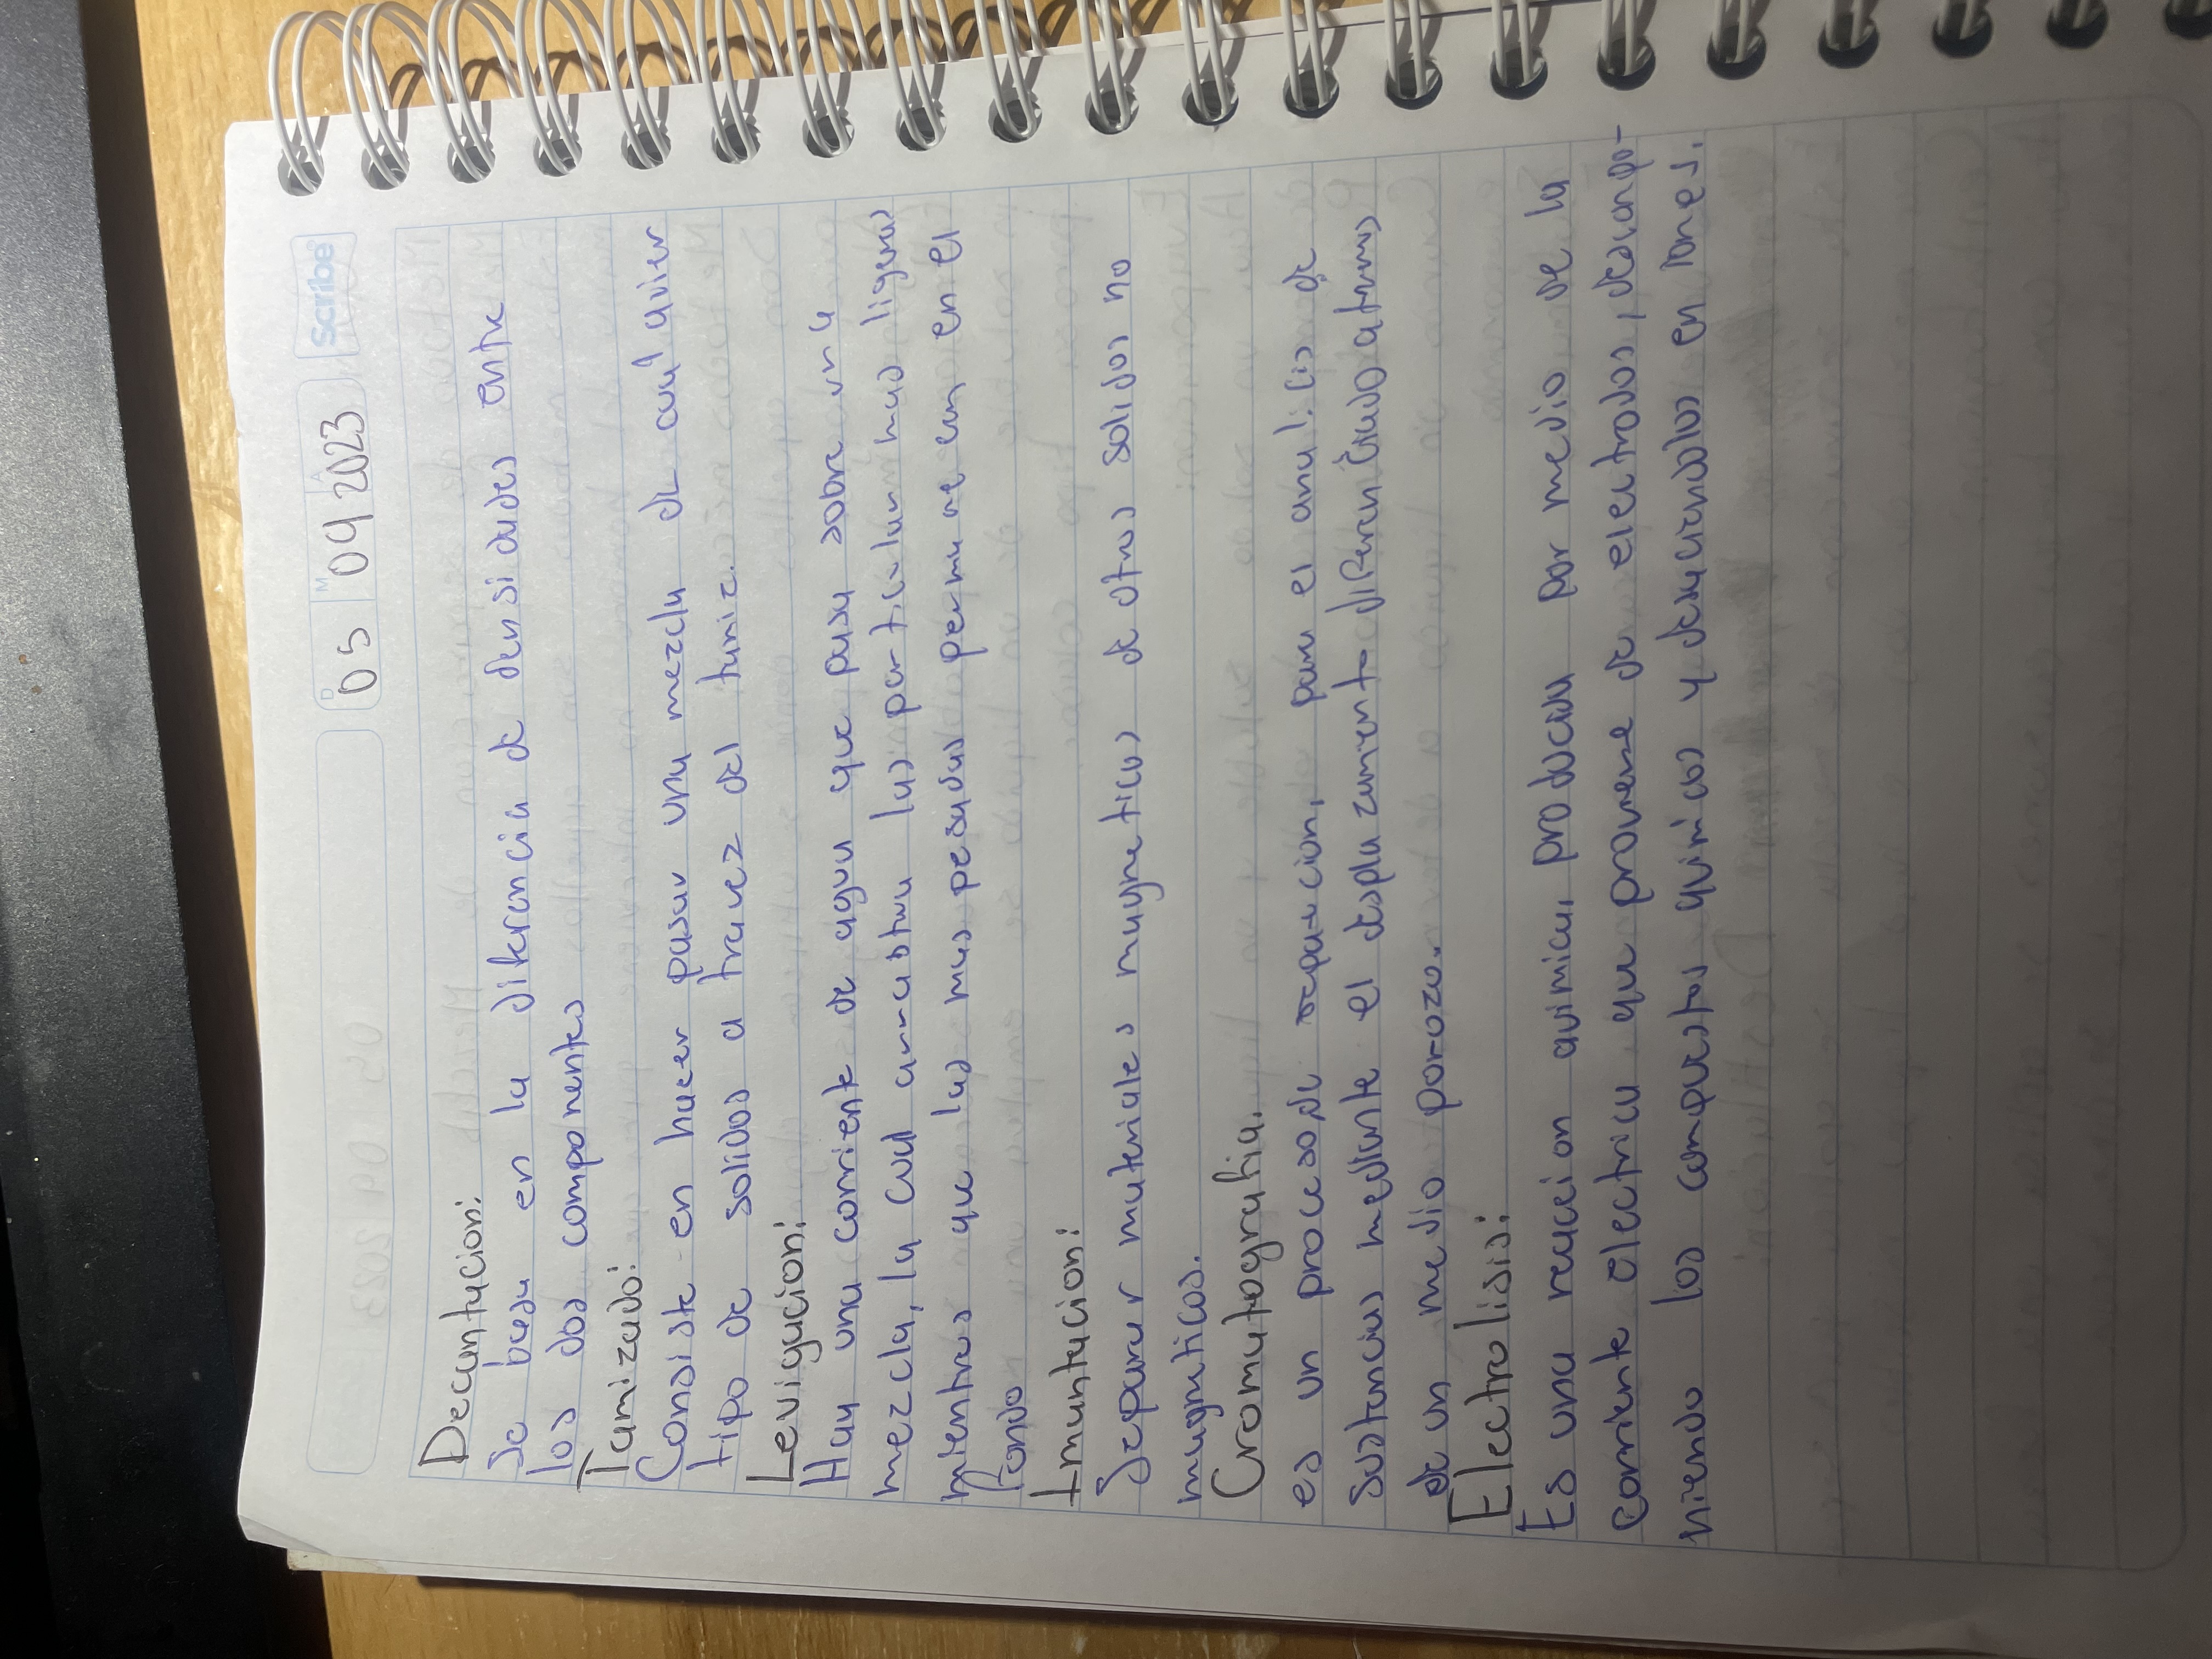 D M A
05 04 2023 Scribe
Decantacion:
Se basa en la diferencia de densidades entre
los dos componentes
Tamizado:
Consiste en hacer pasar una mezcla de cual quier
tipo de solidos a travez del tamiz.
Levigacion:
Hay una corriente de agua que pasa sobre una
mezcla, la cual arrastra las particulas mas ligeras
mientras que las mas pesadas permanecen en el
fondo
Imantacion:
Separar materiales magneticos de otros solidos no
magneticos.
Cromatografia.
es un proceso de separacion, para el analisis de
sustancias mediante el desplazamiento diferenciado atraves
de un medio porozo.
Electrolisis:
Es una reaccion quimica, producida por medio de la
corriente electrica que proviene de electrodos, descompo-
niendo los compuestos quimicos y desaciendolos en iones.